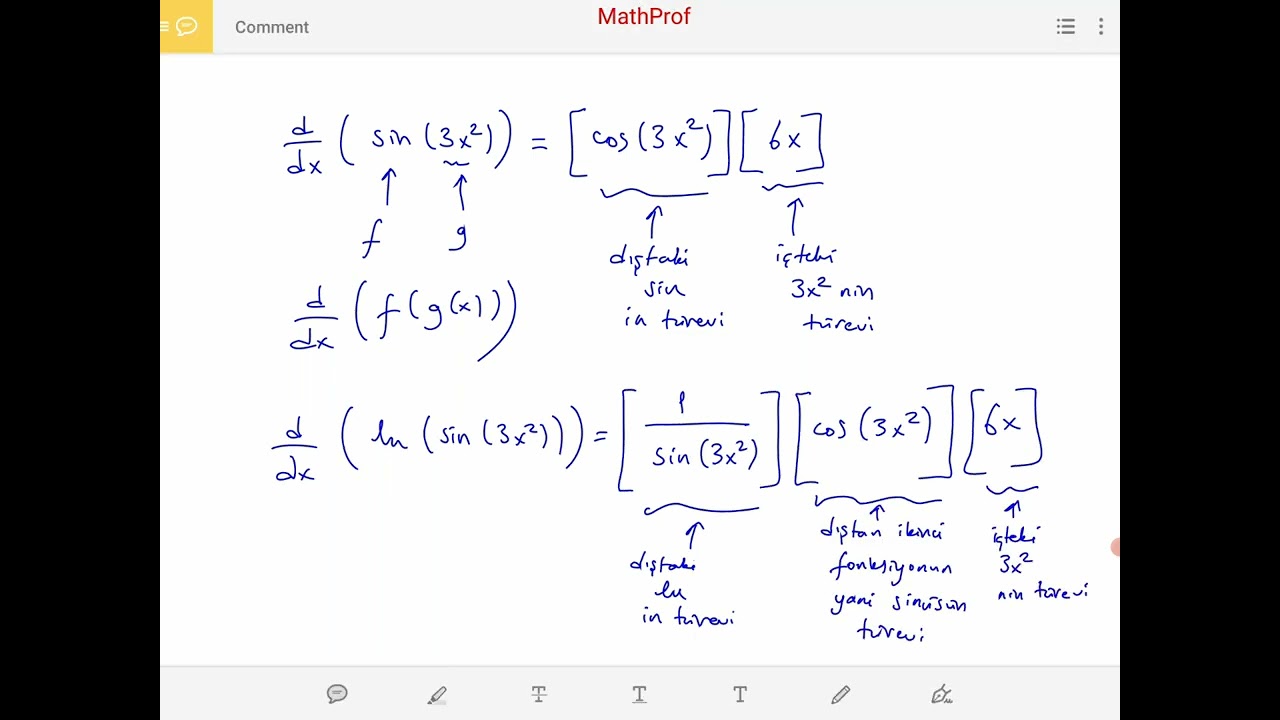 MathProf
Comment
d/dx ( sin (3x²) ) = [ cos (3x²) ] [ 6x ]
f g
dıştaki
sin
in türevi
içteki
3x² nin
türevi
d/dx ( f ( g(x) ) )
d/dx ( ln ( sin (3x²) ) ) = [ 1 / sin (3x²) ] [ cos (3x²) ] [ 6x ]
dıştaki
ln
in türevi
dıştan ikinci
fonksiyonun
yani sinüsün
türevi
içteki
3x²
nin türevi
T T T